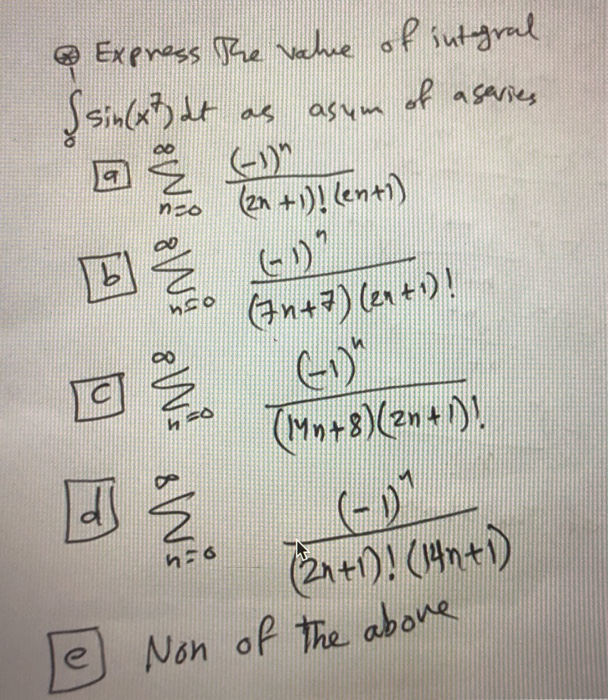 ⊛ Express The value of integral
∫₀¹ sin(x⁷) dt as asum of a series
a ∞ Σ n=0 (-1)ⁿ / (2n+1)! (2n+1)
b ∞ Σ n=0 (-1)ⁿ / (7n+7)(2n+1)!
c ∞ Σ n=0 (-1)ⁿ / (14n+8)(2n+1)!
d ∞ Σ n=0 (-1)ⁿ / (2n+1)! (14n+1)
e Non of the above